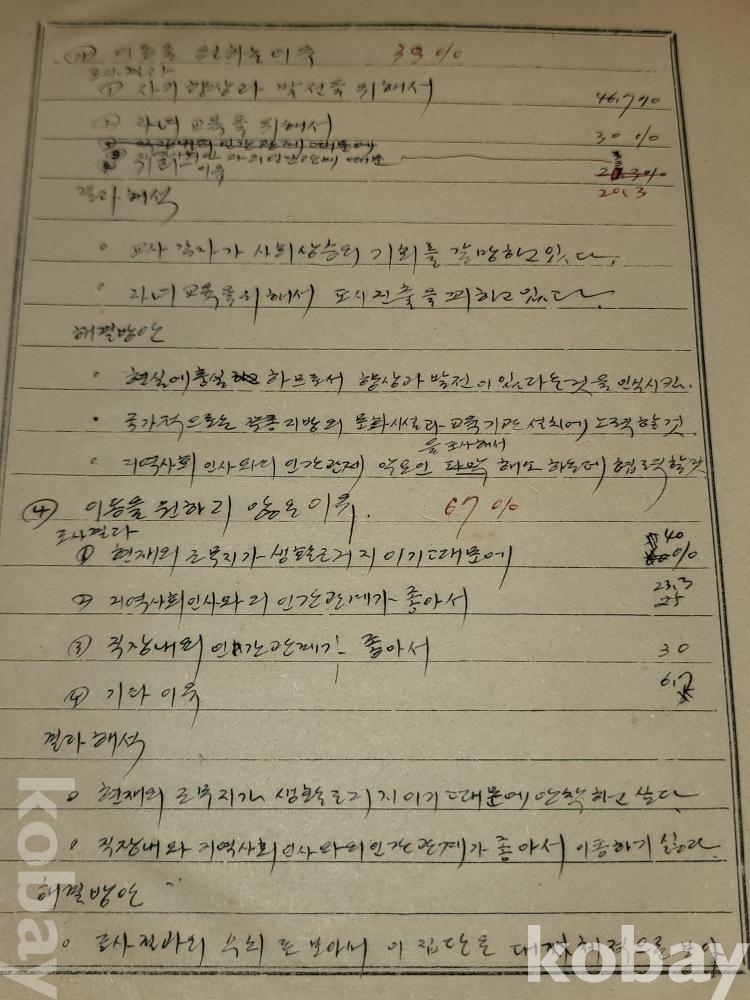 ③ 이동을 원하는 이유 39%
조사결과
① 자기 향상과 발전을 위해서 46.7%
② 자녀 교육을 위해서 30%
직장내의 인간관계 때문에
지역사회인과의 인간관계 때문
이유 20.3
결과해석
○ 교사 각자가 사회상승의 기회를 갈망하고 있다.
○ 자녀 교육을 위해서 도시진출을 꾀하고 있다.
해결방안
○ 현실에 충실 하므로서 향상과 발전이 있다는 것을 인식시킴.
○ 국가적으로는 각종 지방의 문화시설과 교육기관 설치에 노력할 것
을 조사해서
○ 지역사회 인사와의 인간관계 악요인 파악 해소 하는데 협력할것
④ 이동을 원하지 않은 이유. 67%
조사결과
① 현재의 근무지가 생활근거지이기 때문에 40 %
② 지역사회인사와의 인간관계가 좋아서 23.3
25
③ 직장내의 인간관계가 좋아서 30
④ 기타 이유 6.7
결과해석
○ 현재의 근무지가 생활근거지이기 때문에 안착하고 싶다.
○ 직장내와 지역사회인사와의 인간관계가 좋아서 이동하기 싫다.
해결방안
○ 조사결과의 보아 이 집단은
kobay
kobay